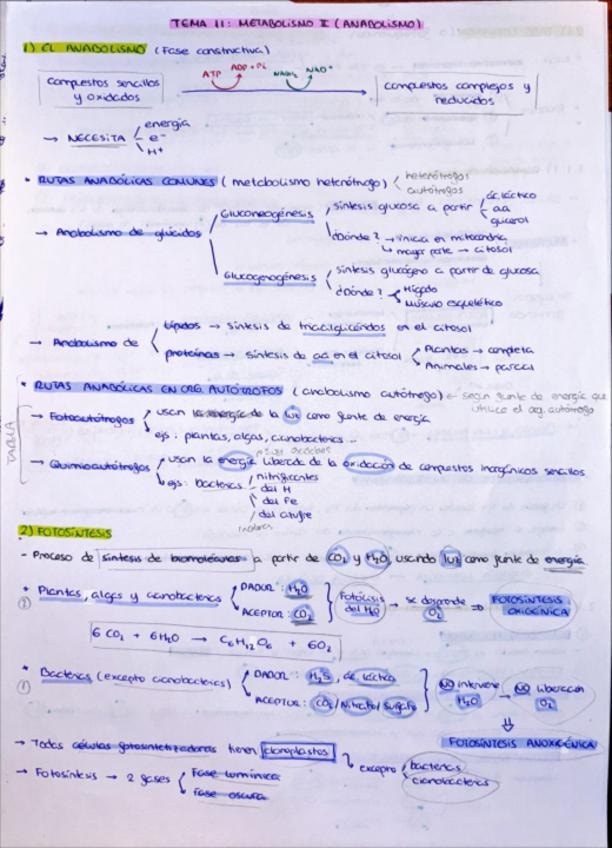 TEMA 11: METABOLISMO II (ANABOLISMO)
1) EL ANABOLISMO (Fase constructiva)
ATP ADP + Pi NADH₂ NAD⁺
compuestos sencillos y oxidados → compuestos complejos y reducidos
→ NECESITA energía
e⁻
H⁺
• RUTAS ANABÓLICAS COMUNES (metabolismo heterótrogo) heterótrogos
autótrogos
→ Anabolismo de glúcidos
Gluconeogénesis síntesis glucosa a partir ác. láctico
aa
glicerol
¿dónde? → inicia en mitocondria
mayor parte → citosol
Glucogenogénesis síntesis glucógeno a partir de glucosa
¿Dónde? Hígado
Músculo esquelético
→ Anabolismo de lípidos → síntesis de triacilglicéridos en el citosol
proteínas → síntesis de aa en el citosol Plantas → completa
Animales → parcial
• RUTAS ANABÓLICAS EN ORG. AUTÓTROFOS (anabolismo autótrogo) ← según fuente de energía que
utilice el org. autótrogo
TABLA
→ Fotoautótrogos usan la energía de la luz como fuente de energía
ejs: plantas, algas, cianobacterias...
→ Quimioautótrogos usan la energía liberada de la oxidación de compuestos inorgánicos sencillos
ejs: bacterias nitrificantes
del H
del Fe
del azufre
2) FOTOSÍNTESIS
- Proceso de síntesis de biomoléculas a partir de CO₂ y H₂O, usando luz como fuente de energía
• Plantas, algas y cianobacterias DADOR: H₂O
ACEPTOR: CO₂
Fotólisis del H₂O → se desprende O₂ ⇒ FOTOSÍNTESIS OXIGÉNICA
②
6 CO₂ + 6H₂O → C₆H₁₂O₆ + 6O₂
• Bacterias (excepto cianobacterias) DADOR: H₂S, ác. láctico
ACEPTOR: CO₂/Nitrato/Sulfato
NO interviene H₂O → NO liberación O₂
①
⇓
FOTOSÍNTESIS ANOXIGÉNICA
→ Todas células fotosintetizadoras tienen cloroplastos excepto bacterias
cianobacterias
→ Fotosíntesis → 2 fases Fase lumínica
Fase oscura